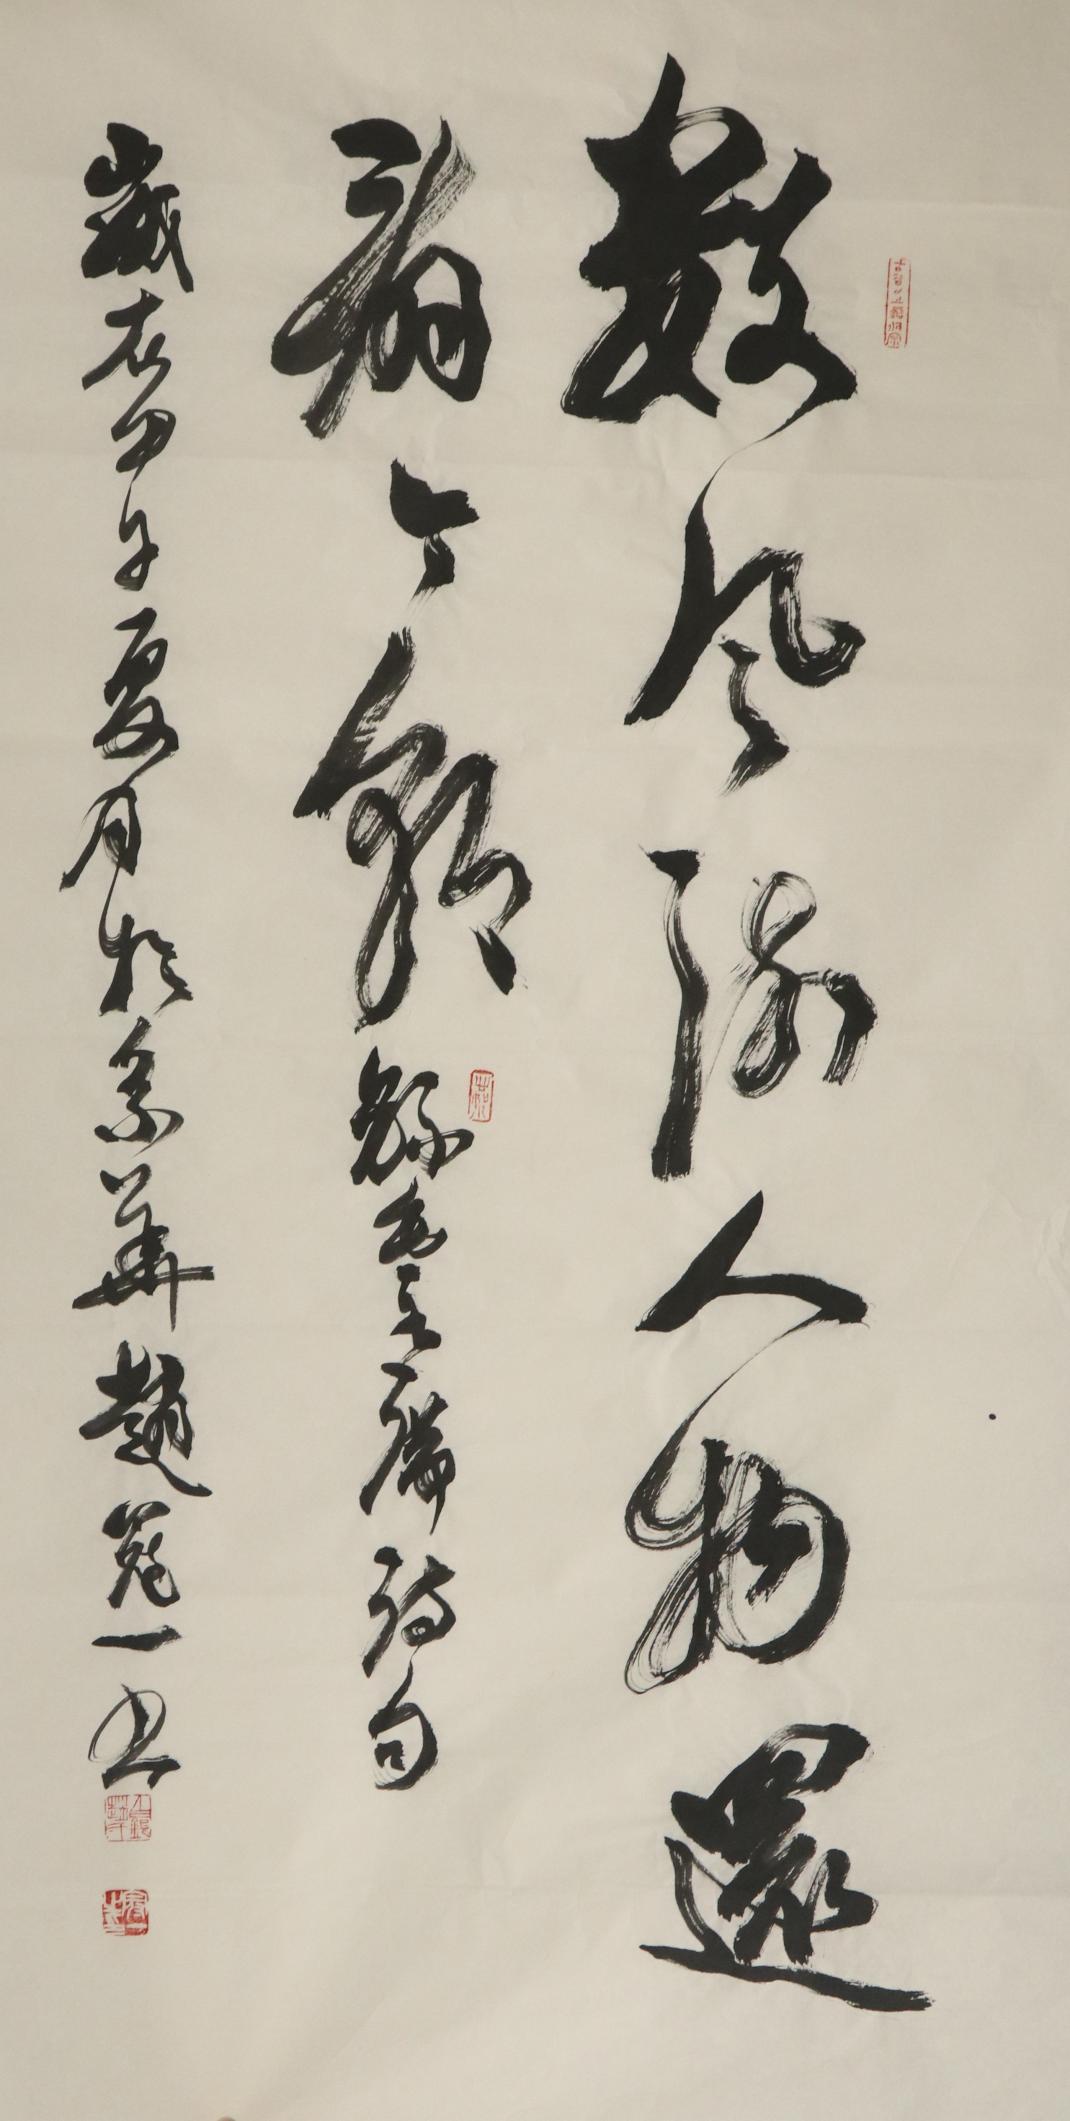 數風流人物還
看今朝 錄毛主席詩句
歲在甲午夏月於京華趙 一書